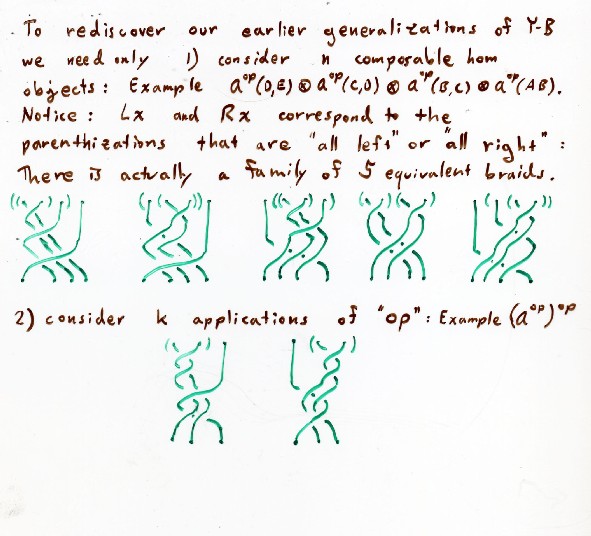 To rediscover our earlier generalizations of Y-B
we need only 1) consider n composable hom
objects: Example a^op(D,E) ⊗ a^op(C,D) ⊗ a^op(B,C) ⊗ a^op(AB).
Notice: Lx and Rx correspond to the
parenthizations that are "all left" or "all right":
There is actually a family of 5 equivalent braids.
((( ) ) ) (( )) ) (( )) ) ( ) ( ) ( ( ))
2) consider k applications of "op": Example (a^op)^op
( ) ( )